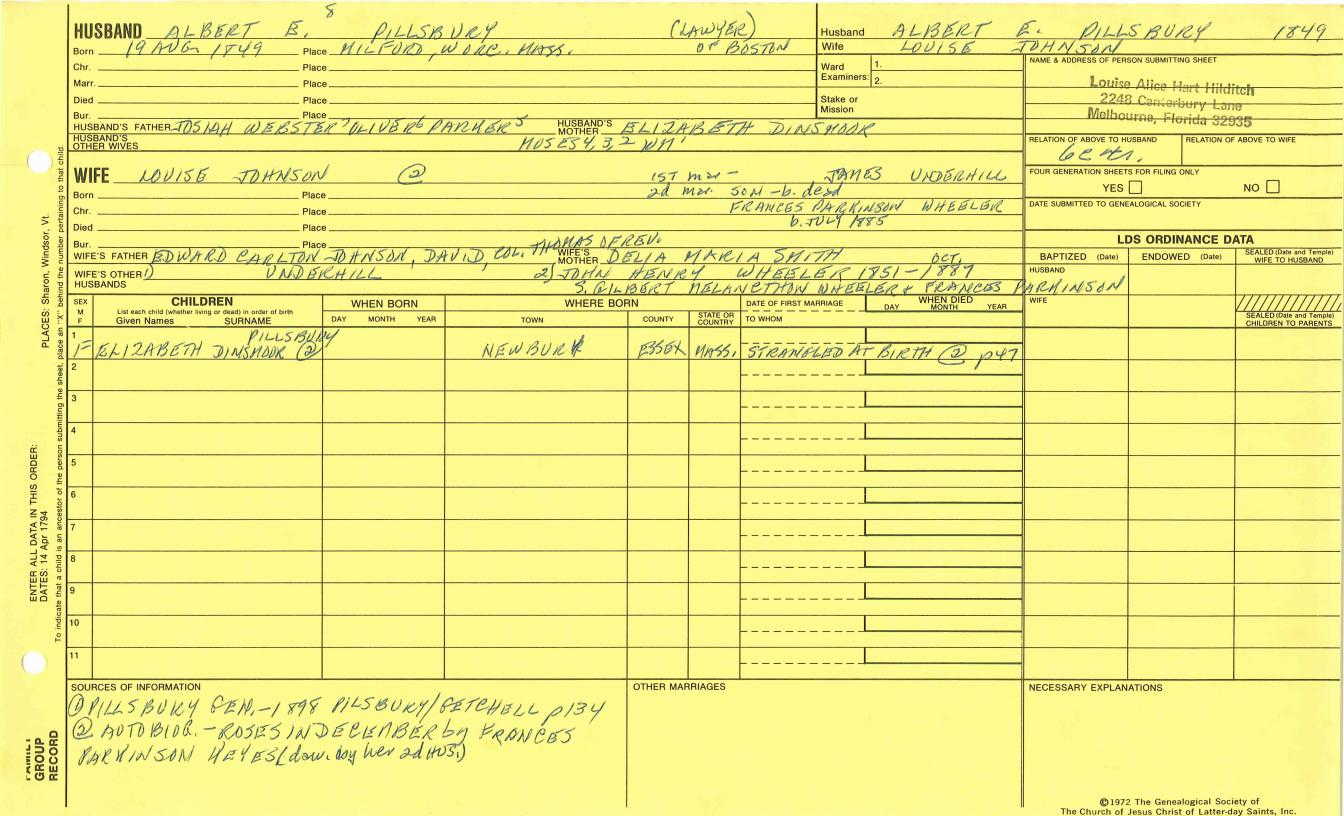 8
HUSBAND ALBERT E. PILLSBURY (LAWYER)
Born 19 AUG 1849 Place MILFORD, WORC. MASS. OF BOSTON
Chr. Place
Marr. Place
Died Place
Bur. Place
HUSBAND'S FATHER JOSIAH WEBSTER7 OLIVER6 PARKER5 HUSBAND'S MOTHER ELIZABETH DINSMOOR
HUSBAND'S OTHER WIVES MOSES 4, 3, 2 WM1
Husband ALBERT E. PILLSBURY 1849
Wife LOUISE JOHNSON
Ward Examiners: 1.
2.
Stake or Mission
NAME & ADDRESS OF PERSON SUBMITTING SHEET
Louise Alice Hart Hilditch
2248 Canterbury Lane
Melbourne, Florida 32935
RELATION OF ABOVE TO HUSBAND RELATION OF ABOVE TO WIFE
FOUR GENERATION SHEETS FOR FILING ONLY
YES NO
DATE SUBMITTED TO GENEALOGICAL SOCIETY
WIFE LOUISE JOHNSON (2) 1ST mar - JAMES UNDERHILL
2d mar. SON - b. dead
Born Place
Chr. Place FRANCES PARKINSON WHEELER
Died Place b. JULY 1885
Bur. Place
WIFE'S FATHER EDWARD CARLTON JOHNSON, DAVID, COL. THOMAS OF REV. WIFE'S MOTHER DELIA MARIA SMITH OCT.
WIFE'S OTHER HUSBANDS 1) UNDERHILL 2) JOHN HENRY WHEELER 1851-1887
S. GILBERT MELANCTHON WHEELER & FRANCES PARKINSON
LDS ORDINANCE DATA
BAPTIZED (Date) ENDOWED (Date) SEALED (Date and Temple) WIFE TO HUSBAND
HUSBAND
WIFE
SEALED (Date and Temple) CHILDREN TO PARENTS
SEX M F
CHILDREN
List each child (whether living or dead) in order of birth
Given Names SURNAME
WHEN BORN
DAY MONTH YEAR
WHERE BORN
TOWN COUNTY STATE OR COUNTRY
DATE OF FIRST MARRIAGE
TO WHOM
WHEN DIED
DAY MONTH YEAR
1 PILLSBURY
F ELIZABETH DINSMOOR (2) NEWBURY ESSEX MASS. STRANGLED AT BIRTH (2) p47
2
3
4
5
6
7
8
9
10
11
SOURCES OF INFORMATION
(1) PILLSBURY GEN. - 1898 PILSBURY/GETCHELL p134
(2) AUTOBIOG. - ROSES IN DECEMBER by FRANCES
PARKINSON KEYES (dau. by her 2d HUS.)
OTHER MARRIAGES
NECESSARY EXPLANATIONS
PLACES: Sharon, Windsor, Vt.
ENTER ALL DATA IN THIS ORDER:
DATES: 14 Apr 1794
To indicate that a child is an ancestor of the person submitting the sheet, place an "X" behind the number pertaining to that child.
FAMILY GROUP RECORD
©1972 The Genealogical Society of
The Church of Jesus Christ of Latter-day Saints, Inc.